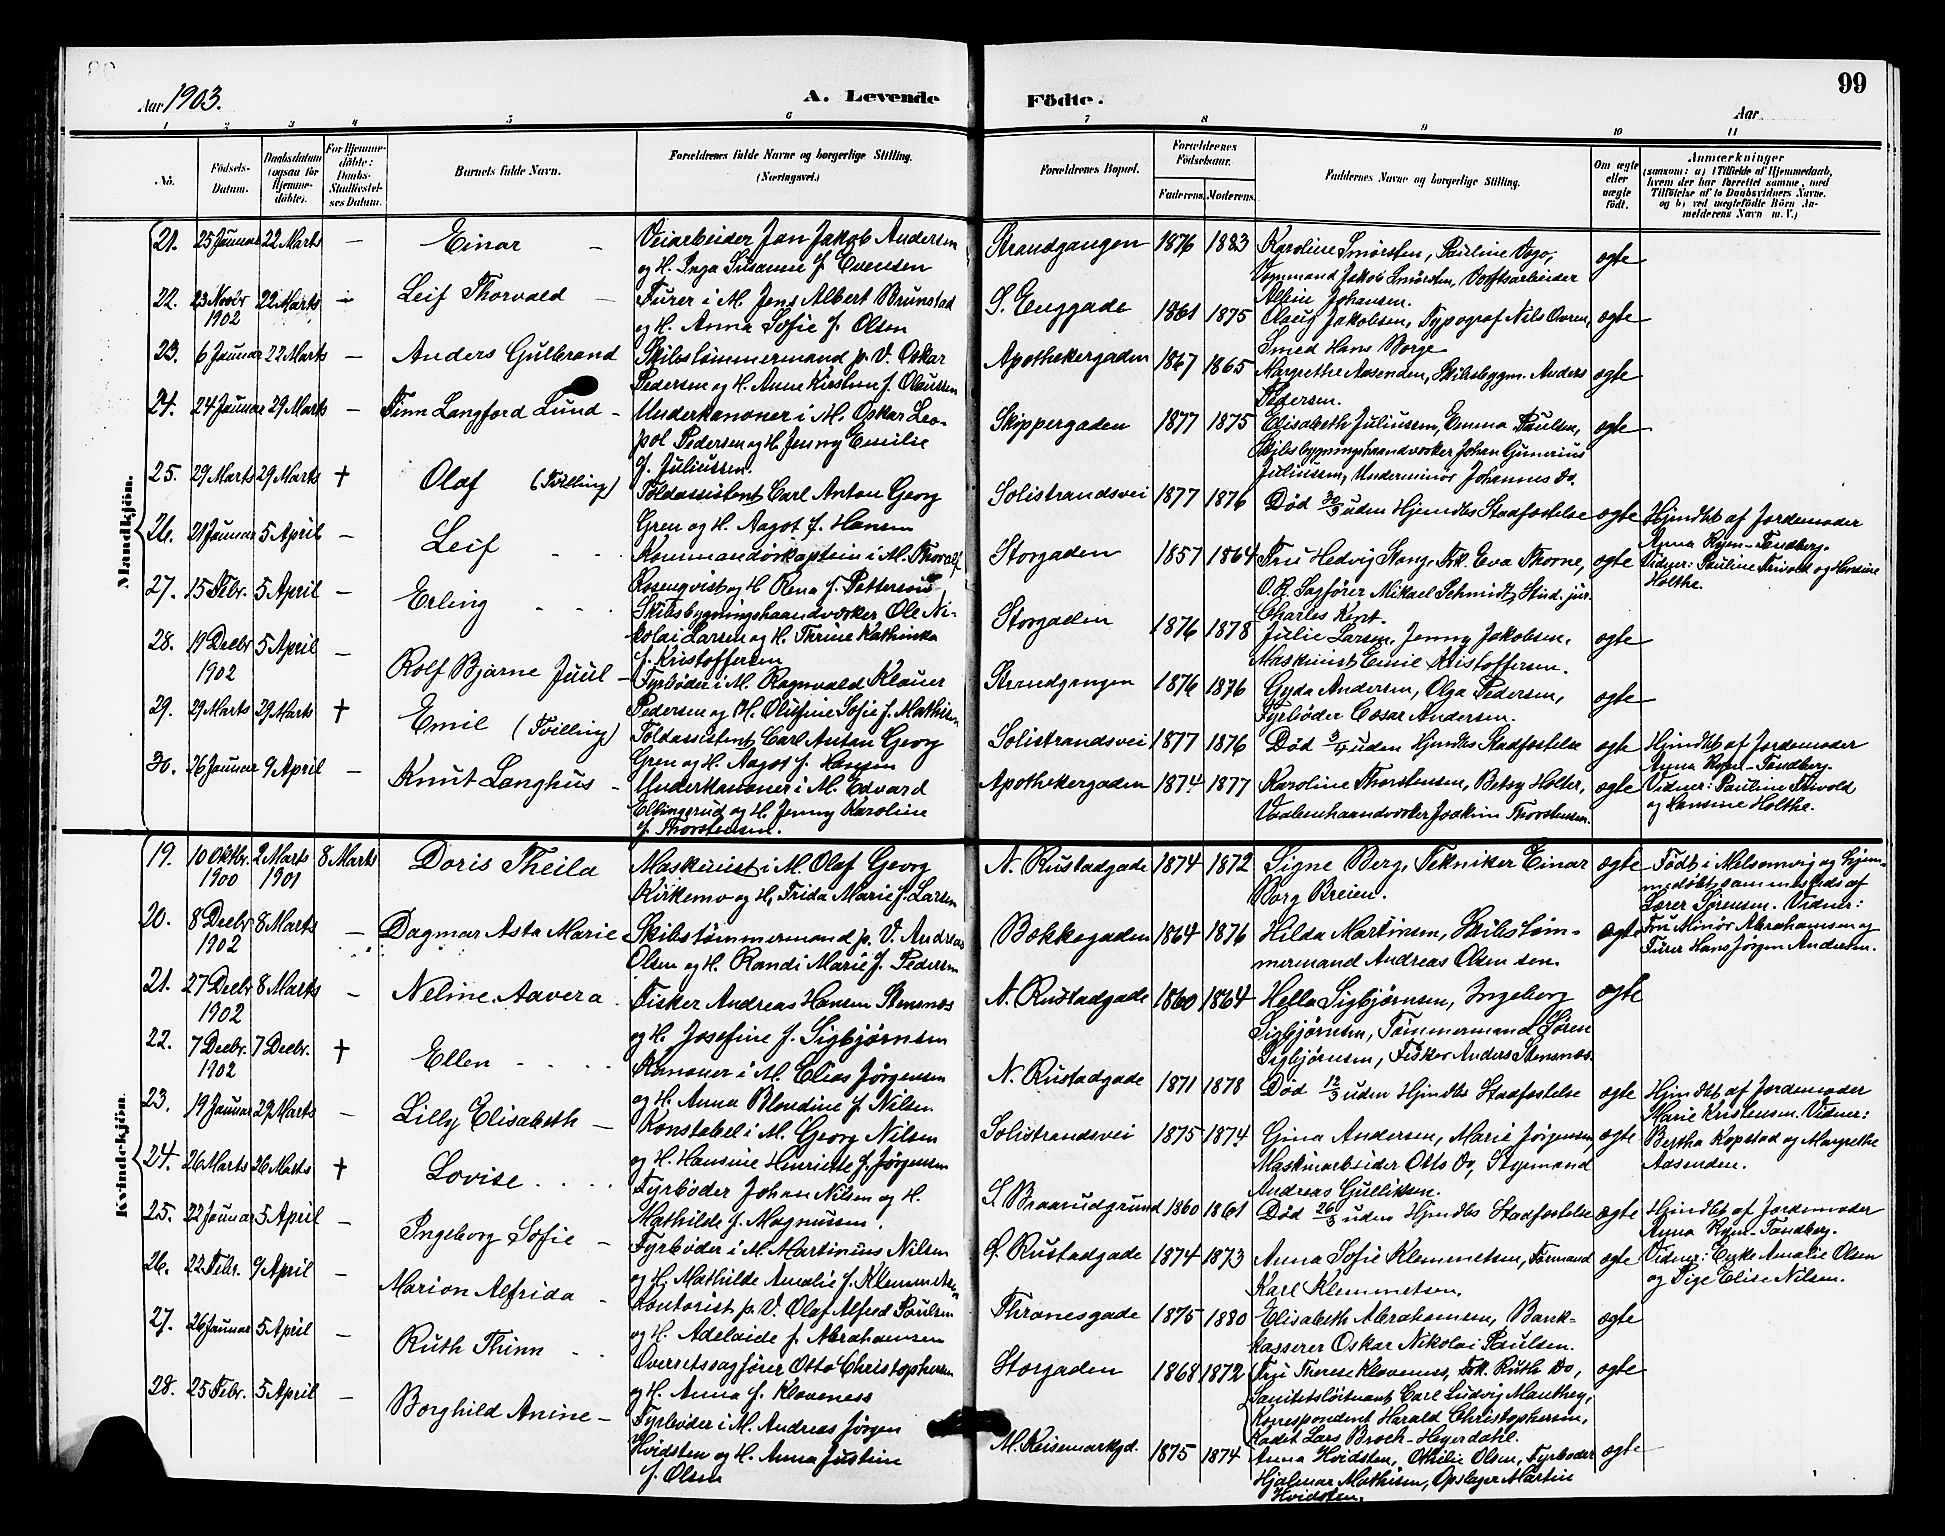 99
Aar 1903.
A. Levende Födte.
Aar
1 2 3 4 5 6 7 8 9 10 11
No.
Födsels-Datum.
Daabsdatum (ogsaa for Hjemme-döbte).
For Hjemme-döbte: Daabs-Stadfæstel-ses Datum.
Barnets fulde Navn.
Forældrenes fulde Navne og borgerlige Stilling. (Næringsvei.)
Forældrenes Bopæl.
Forældrenes Födselsaar.
Faderens. Moderens.
Faddernes Navne og borgerlige Stilling.
Om ægte eller uægte födt.
Anmærkninger
(saasom: a) i Tilfælde af Hjemmedaab, hvem der har forrettet samme, med Tilföielse af to Daabsvidners Navne. og b) ved uægtefödte Börn An-melderens Navn m. V.)
Mandkjön.
21. 25 Januar 22 Marts — Einar — Veiarbeider Jan Jakob Andersen
og H. Inga Susanne f. Evensen
Strandgangen 1876 1883 Karoline Smørsten, Pauline Vogo,
Vognmand Jakob Smørsten, Værftsarbeider
Alfin Johansen.
ægte
22. 23 Novbr 1902 22 Marts — Leif Thorvald — Furer i M. Jens Albert Brunstad
og H. Anna Sofie f. Olsen
S. Enggade 1861 1875 Olaug Jakobsen, Typograf Nils Evren,
Smed Hans Borge
ægte
23. 6 Januar 22 Marts — Anders Gulbrand Skibstømmermand p. V. Oskar
Pedersen og H. Anne Kirstine f. Olaussen
Apothekergaden 1867 1865 Margrethe Aasenden, Skibsbygm. Anders
Pedersen.
ægte
24. 24 Januar 29 Marts — Finn Langford Lund — Underkanoner i M. Oskar Leo-
pol Pedersen og H. Jenny Emilie
f. Juliussen.
Skippergaden 1877 1875 Elisabeth Juliussen, Emma Paulsen,
Skibsbygningshaandværker Johan Gunerius
Juliussen, Underminør Johannes Do.
ægte
25. 29 Marts 29 Marts † Olaf (Tvilling) Toldassistent Carl Anton Georg
Gren og H. Aagot f. Hansen
Solistrandsvei 1877 1876 Död 30/3 uden Hjemdbs Stadfæstelse ægte
Hjmdbt af Jordemoder
Anna Rym-Tandberg.
Vidner: Pauline Trivold og Hansine
Holthe.
26. 21 Januar 5 April — Leif Kommandørkaptein i M. Thoralf
Rosenqvist og H. Rena f. Pettersen
Storgaden 1857 1864 Fru Hedvig Stang, Frk. Eva Thorne,
O.R. Sagfører Mikael Schmidt, Stud. jur.
Charles Kiøt.
ægte
27. 15 Febr. 5 April — Erling Skibsbygningshaandværker Ole Ni-
kolai Larsen og H. Thrine Kathinka
f. Kristoffersen
Storgaden 1876 1878 Julie Larsen, Jenny Jakobsen,
Maskinist Emil Kristoffersen.
ægte
28. 19 Decbr 1902 5 April — Rolf Bjarne Juul — Fyrbøder i M. Ragnvald Klauer
Pedersen og H. Olufine Sofie f. Mathisen
Strandgangen 1876 1876 Gyda Andersen, Olga Pedersen,
Fyrbøder Cæsar Andersen.
ægte
29. 29 Marts 29 Marts † Emil (Tvilling) Toldassistent Carl Anton Georg
Gren og H. Aagot f. Hansen
Solistrandsvei 1877 1876 Död 3/4 uden Hjmdbs Stadfæstelse ægte
Hjmdbt af Jordemoder
Anna Rym-Tandberg.
Vidner: Pauline Trivold
og Hansine Holthe.
30. 26 Januar 9 April — Knut Langhus — Underkanoner i M. Edvard
Ellingsrud og H. Jenny Karoline
f. Thorstensen.
Apothekergaden 1874 1877 Karoline Thorstensen, Betsy Holter,
Vaabenhaandværker Joakim Thorstensen.
ægte
Kvindekjön.
19. 10 Oktbr. 1900 2 Marts 1901 8 Marts Doris Theila Maskinist i M. Olaf Georg
Kirkemo og H. Frida Marie f. Larsen
N. Rustadgade 1874 1872 Signe Berg, Tekniker Einar
Borg Breien.
ægte
Födt i Melsomvig og hjem-
medöbt sammesteds af
Lærer Sørensen. Vidner:
Fru Minør Abrahamsen og
Furer Hans Jørgen Andersen.
20. 8 Decbr 1902 8 Marts — Dagmar Asta Marie Skibstømmermand p. V. Andreas
Olsen og H. Randi Marie f. Pedersen
Bakkegaden 1864 1876 Hilda Martinsen, Skibstøm-
mermand Andreas Olsen sen.
ægte
21. 27 Decbr 1902 8 Marts — Neline Aavera Fisker Andreas Hansen Stensnæs
og H. Josefine f. Sigbjørnsen
N. Rustadgade 1860 1864 Hella Sigbjørnsen, Ingeborg
Sigbjørnsen, Tømmermand Søren
Sigbjørnsen, Fisker Anders Stensnæs
ægte
22. 7 Decbr. 1902 7 Decbr. † Ellen Kanoner i M. Elias Jørgensen
og H. Anna Blondine f. Nilsen
N. Rustadgade 1871 1878 Död 12/3 uden Hjmdbs Stadfæstelse ægte
Hjmdbt af Jordemoder
Marie Kristensen. Vidner:
Bertha Kopstad og Margrethe
Aasenden.
23. 19 Januar 29 Marts — Lilly Elisabeth — Konstabel i M. Georg Nilsen
og H. Hansine Henriette f. Jørgensen
Solistrandsvei 1875 1874 Gina Andersen, Marie Jørgensen,
Maskinarbeider Otto Do, Styrmand
Andreas Gulliksen.
ægte
24. 26 Marts 26 Marts † Lovise Fyrbøder Johan Nilsen og H.
Mathilde f. Magnussen.
S. Braarudgrund 1860 1861 Död 26/3 uden Hjmdbs Stadfæstelse ægte
Hjmdbt af Jordemoder
Anna Rym-Tandberg.
Vidner: Enke Amalie Olsen
og Pige Elise Nilsen.
25. 22 Januar 5 April — Ingeborg Sofie — Fyrbøder i M. Martinius Nilsen
og H. Mathilde Amalie f. Klemmetsen
Ø. Rustadgade 1874 1873 Anna Sofie Klemmetsen, Formand
Karl Klemmetsen.
ægte
26. 22 Febr. 9 April — Marion Alfrida — Kontorist p. V. Olaf Alfred Paulsen
og H. Adelaide f. Abrahamsen
Thranesgade 1875 1880 Elisabeth Abrahamsen, Bank-
kasserer Oskar Nikolai Paulsen.
ægte
27. 26 Januar 5 April — Ruth Thinn Overretssagfører Otto Christophersen
og H. Anna f. Klaveness
Storgaden 1868 1872 Fru Therese Klaveness, Frk. Ruth Do,
Sanitetsløitnant Carl Ludvig Manthey,
Korrespondent Harald Christophersen,
Kadet Lars Broch-Heyerdahl.
ægte
28. 25 Febr. 5 April — Borghild Anine — Fyrbøder i M. Andreas Jørgen
Hvidsten og H. Anna Justine
f. Olsen
M. Keisemarkgd. 1875 1874 Anna Hvidsten, Othilie Olsen, Fyrbøder
Hjalmar Mathisen, Opslager Martin
Hvidsten.
ægte